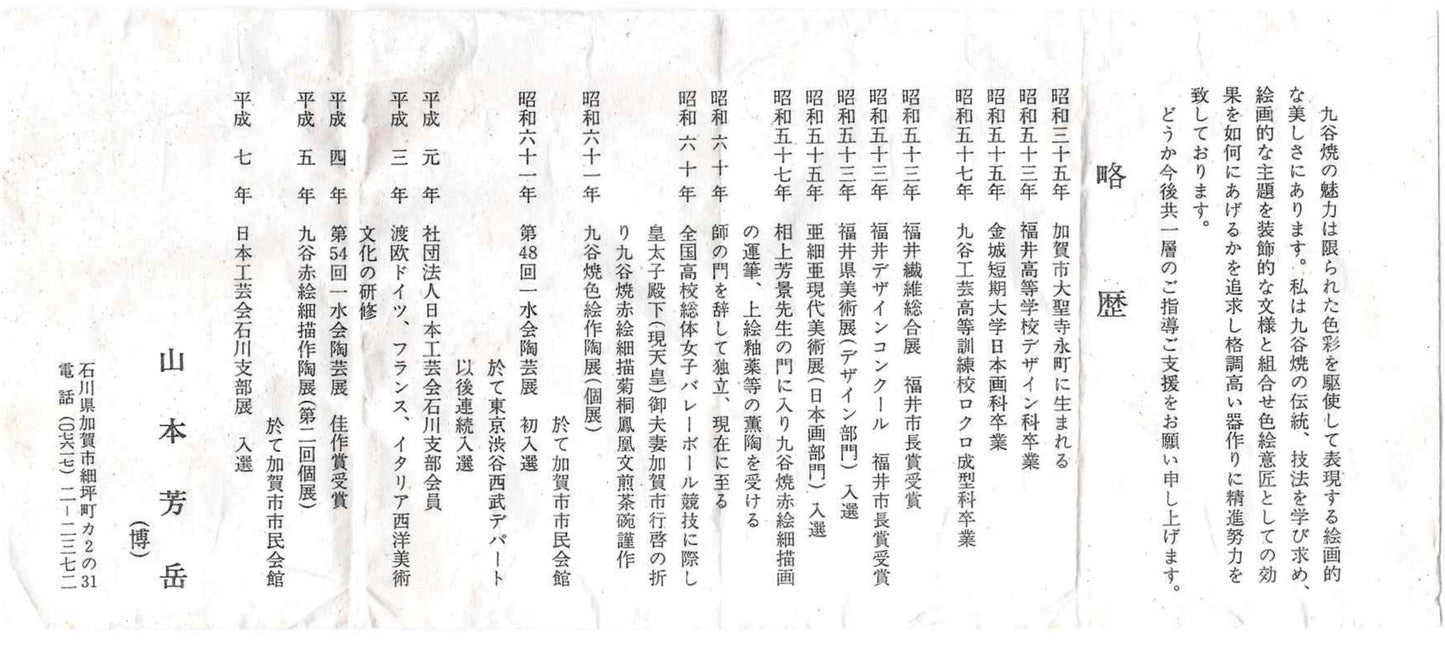 九谷焼の魅力は限られた色彩を駆使して表現する絵画的
な美しさにあります。私は九谷焼の伝統、技法を学び求め、
絵画的な主題を装飾的な文様と組合せ色絵意匠としての効
果を如何にあげるかを追求し格調高い器作りに精進努力を
致しております。
どうか今後共一層のご指導ご支援をお願い申し上げます。
略歴
昭和三十五年 加賀市大聖寺永町に生まれる
昭和五十三年 福井高等学校デザイン科卒業
昭和五十五年 金城短期大学日本画科卒業
昭和五十七年 九谷工芸高等訓練校ロクロ成型科卒業
昭和五十三年 福井繊維総合展 福井市長賞受賞
昭和五十三年 福井デザインコンクール 福井市長賞受賞
昭和五十三年 福井県美術展(デザイン部門)入選
昭和五十五年 亜細亜現代美術展(日本画部門)入選
昭和五十七年 相上芳景先生の門に入り九谷焼赤絵細描画
の運筆、上絵釉薬等の薫陶を受ける
昭和六十年 師の門を辞して独立、現在に至る
昭和六十年 全国高校総体女子バレーボール競技に際し
皇太子殿下(現天皇)御夫妻加賀市行啓の折
り九谷焼赤絵細描菊桐鳳凰文煎茶碗謹作
昭和六十一年 九谷焼色絵作陶展(個展)
於て加賀市市民会館
昭和六十一年 第48回一水会陶芸展 初入選
於て東京渋谷西武デパート
以後連続入選
平成元年 社団法人日本工芸会石川支部会員
平成三年 渡欧ドイツ、フランス、イタリア西洋美術
文化の研修
平成四年 第54回一水会陶芸展 佳作賞受賞
平成五年 九谷赤絵細描作陶展(第二回個展)
於て加賀市市民会館
平成七年 日本工芸会石川支部展 入選
山本芳岳
(博)
石川県加賀市細坪町カ2の31
電話(〇七六一七)二ー二三七二